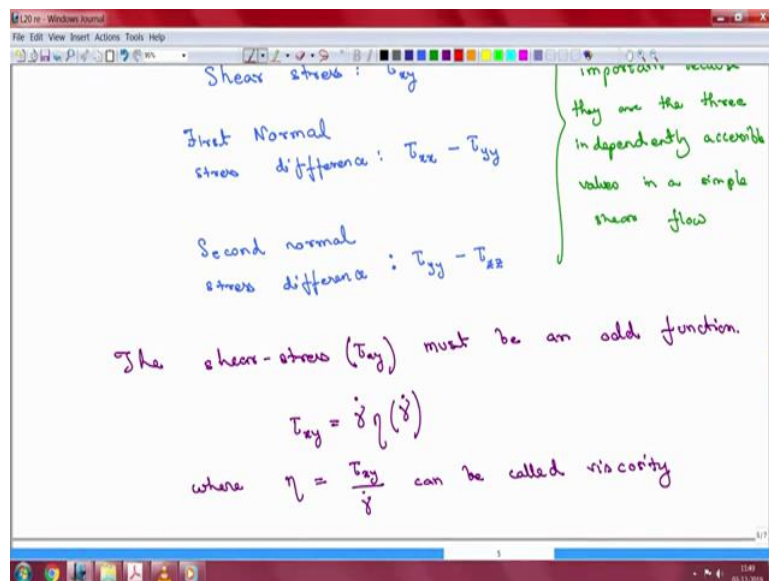 L20 re - Windows Journal
File Edit View Insert Actions Tools Help
Shear stress : τxy
First Normal
stress difference : τxx - τyy
Second normal
stress difference : τyy - τzz
important because
they are the three
independently accessible
values in a simple
shear flow
The shear-stress (τxy) must be an odd function.
τxy = γ̇ η(γ̇)
where η = τxy / γ̇ can be called viscosity
5
11:49